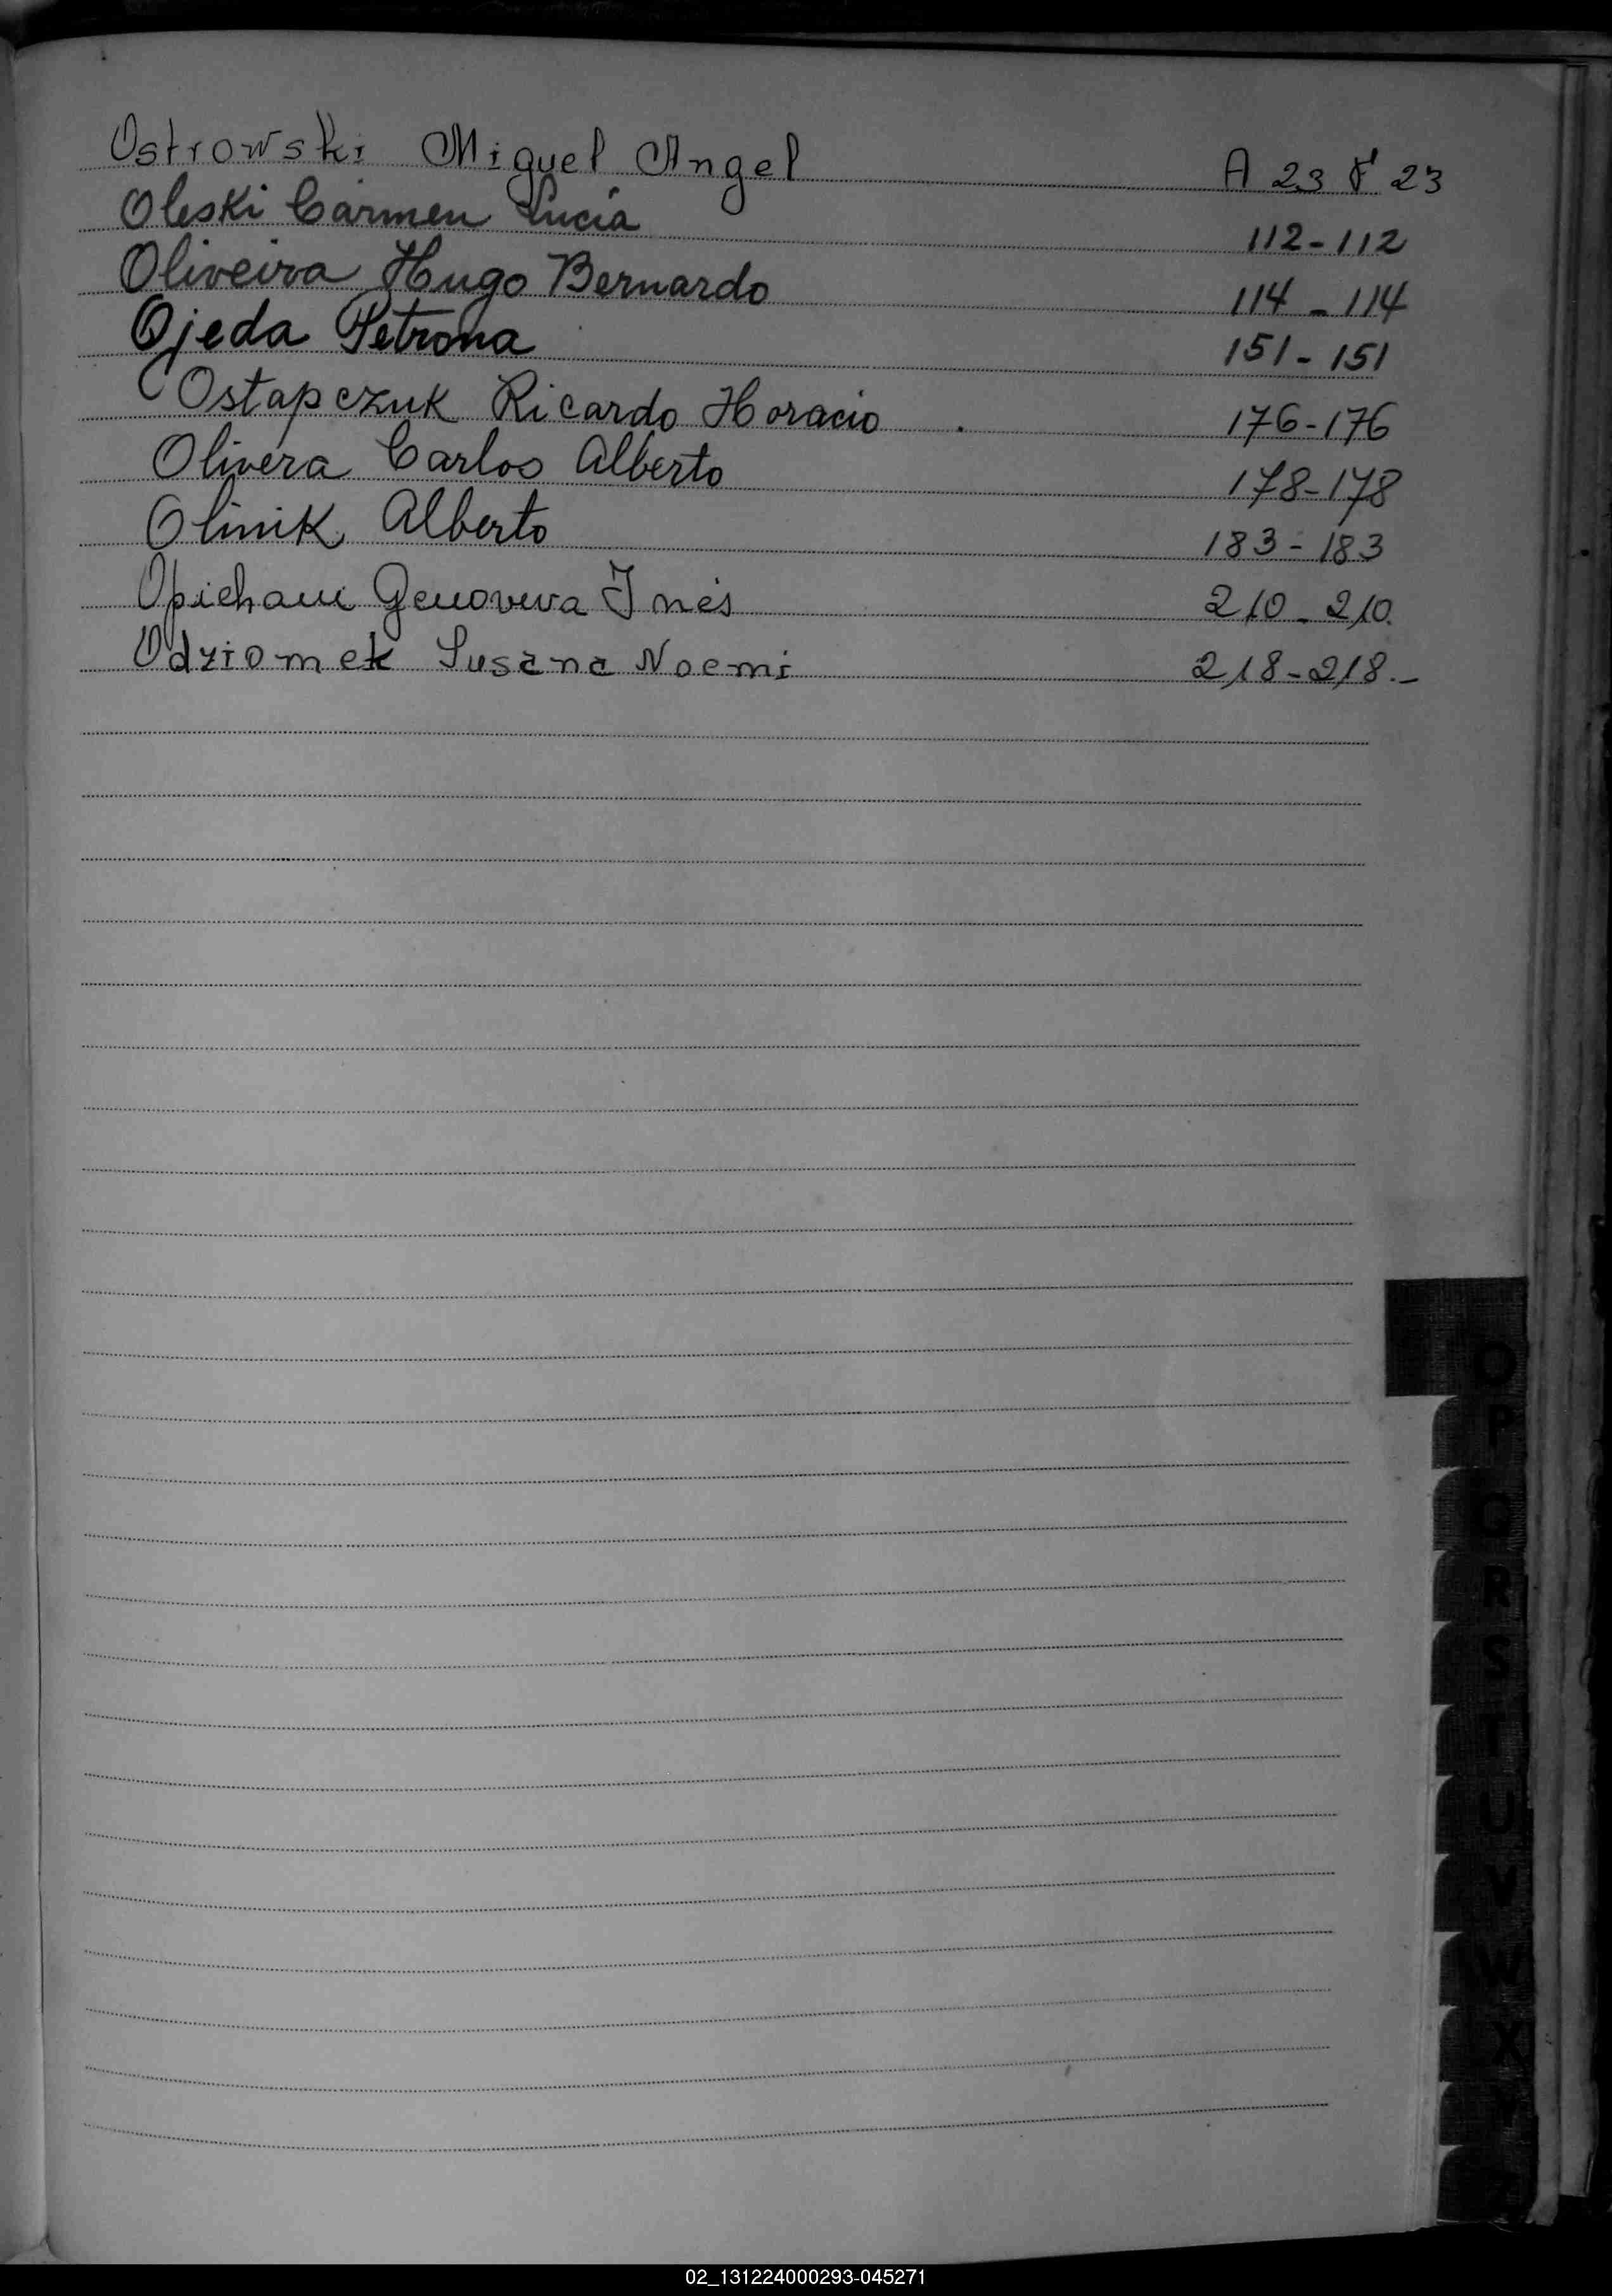 Ostrowski Miguel Angel A 23 F 23
Oleski Carmen Lucia 112-112
Oliveira Hugo Bernardo 114 - 114
Ojeda Petrona 151 - 151
Ostapczuk Ricardo Horacio 176-176
Olivera Carlos Alberto 178-178
Olinik Alberto 183 - 183
Genoveva Inés 210 - 210
Odziomek Susana Noemi 218-218.-
O
P
Q
R
S
T
U
V
W
X
Y
Z
02_131224000293-045271